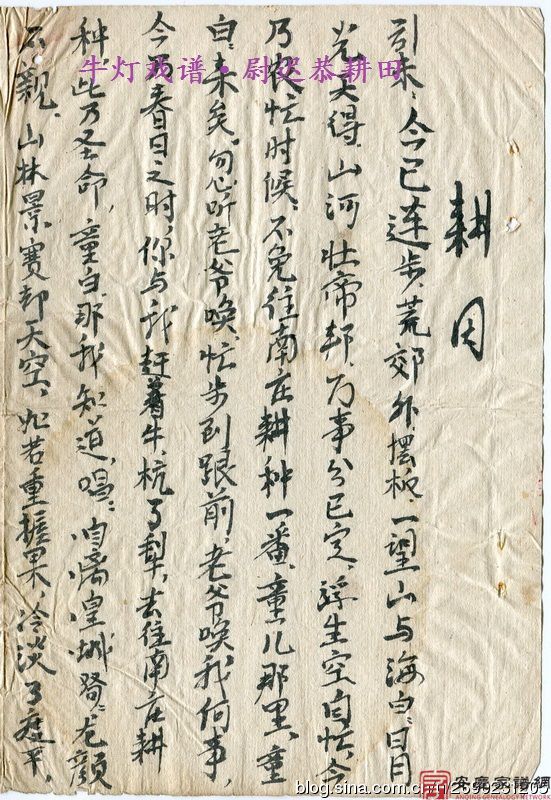 牛灯戏谱·尉迟恭耕田
耕田
引末：今已连步、荒郊外摆板、一望山与海白：日月
光天得、山河壮帝邦、万事分已定、浮生空自忙、今
乃农忙时候、不免往南庄耕种一番、童儿那里、童
白：未矣、勿听老爷唤、忙步到跟前、老爷唤我何事、
今乃春日之时、你与我赶着牛、杭了犁、去住南庄耕
种、此乃圣命、童白：那我知道、唱：自离皇城、龙颜
不亲、山林景赛却天空、如若重摧果、冷淡了
安庆家谱網
ANQING GENEALOGY NETWORK